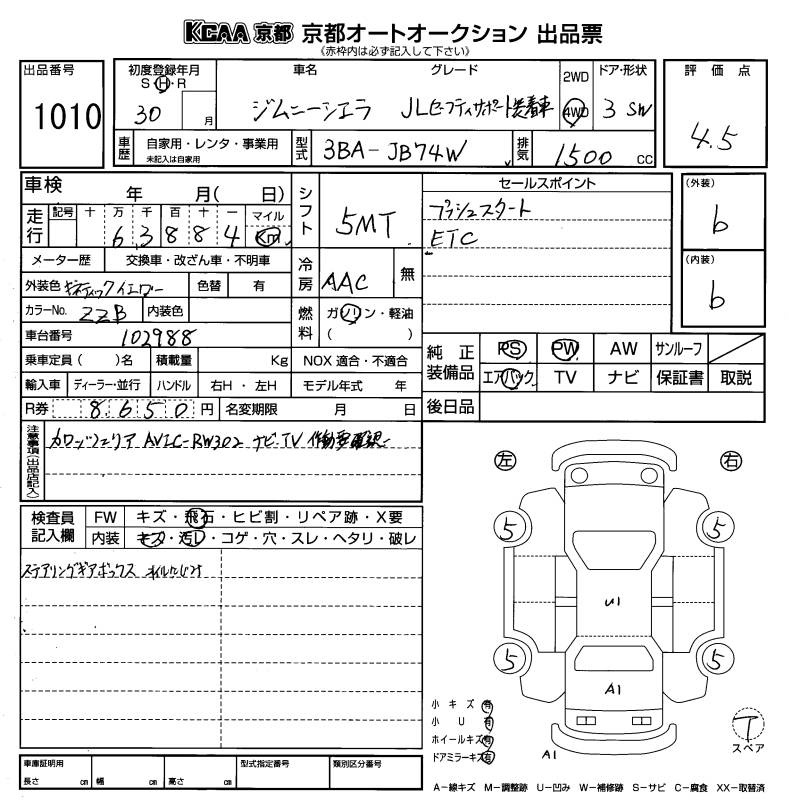 KCAA 京都 京都オートオークション 出品票
(赤枠内は必ず記入して下さい)
出品番号 1010
初度登録年月 S・H・R 30 月
車名 ジムニーシエラ
グレード JLセーフティサポート装着車
2WD 4WD
ドア・形状 3 SW
評価点 4.5
車歴 自家用・レンタ・事業用
未記入は自家用
型式 3BA-JB74W
排気 1500 cc
車検 年 月( 日)
走行 記号 十 万 千 百 十 一 マイル
6 3 8 8 4 Km
シフト 5MT
セールスポイント
プッシュスタート
ETC
(外装) b
(内装) b
メーター歴 交換車・改ざん車・不明車
冷房 AAC 無
外装色 キネティックイエロー 色替 有
カラーNo. ZZB 内装色
燃料 ガソリン・軽油
( )
車台番号 102988
乗車定員( )名 積載量 Kg NOX 適合・不適合
輸入車 ディーラー・並行 ハンドル 右H・左H モデル年式 年
R券 8,650 円 名変期限 月 日
純正装備品 PS PW AW サンルーフ
エアバック TV ナビ 保証書 取説
後日品
注意事項(出品店記入)
カロッツェリア AVIC-RW302 ナビ・TV 作動要確認
検査員記入欄 FW キズ・飛石・ヒビ割・リペア跡・X要
内装 キズ・汚レ・コゲ・穴・スレ・ヘタリ・破レ
ステアリングギアボックス オイルにじみ
左 右
5 5
U1
5 5
A1
小キズ 有
小U 有
ホイールキズ 有
ドアミラーキズ 有
A1
T
スペア
車庫証明用 長さ cm 幅 cm 高さ cm
型式指定番号 類別区分番号
A-線キズ M-調整跡 U-凹み W-補修跡 S-サビ C-腐食 XX-取替済